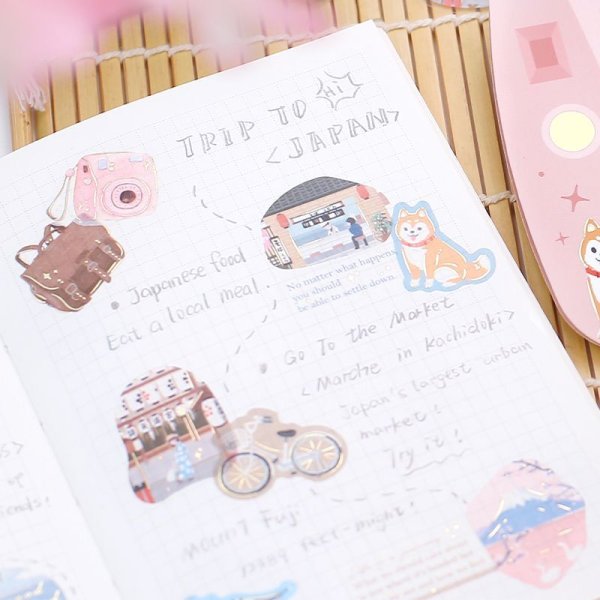 HI
TRIP TO
<JAPAN>
• Japanese food
Eat a local meal.
No matter what happens
you should
be able to settle down.
• Go To the Market
<Marche in Kachidoki>
Japan's largest urban
market!
Try it!
Mount Fuji
feet-might!
S>
of
iends!